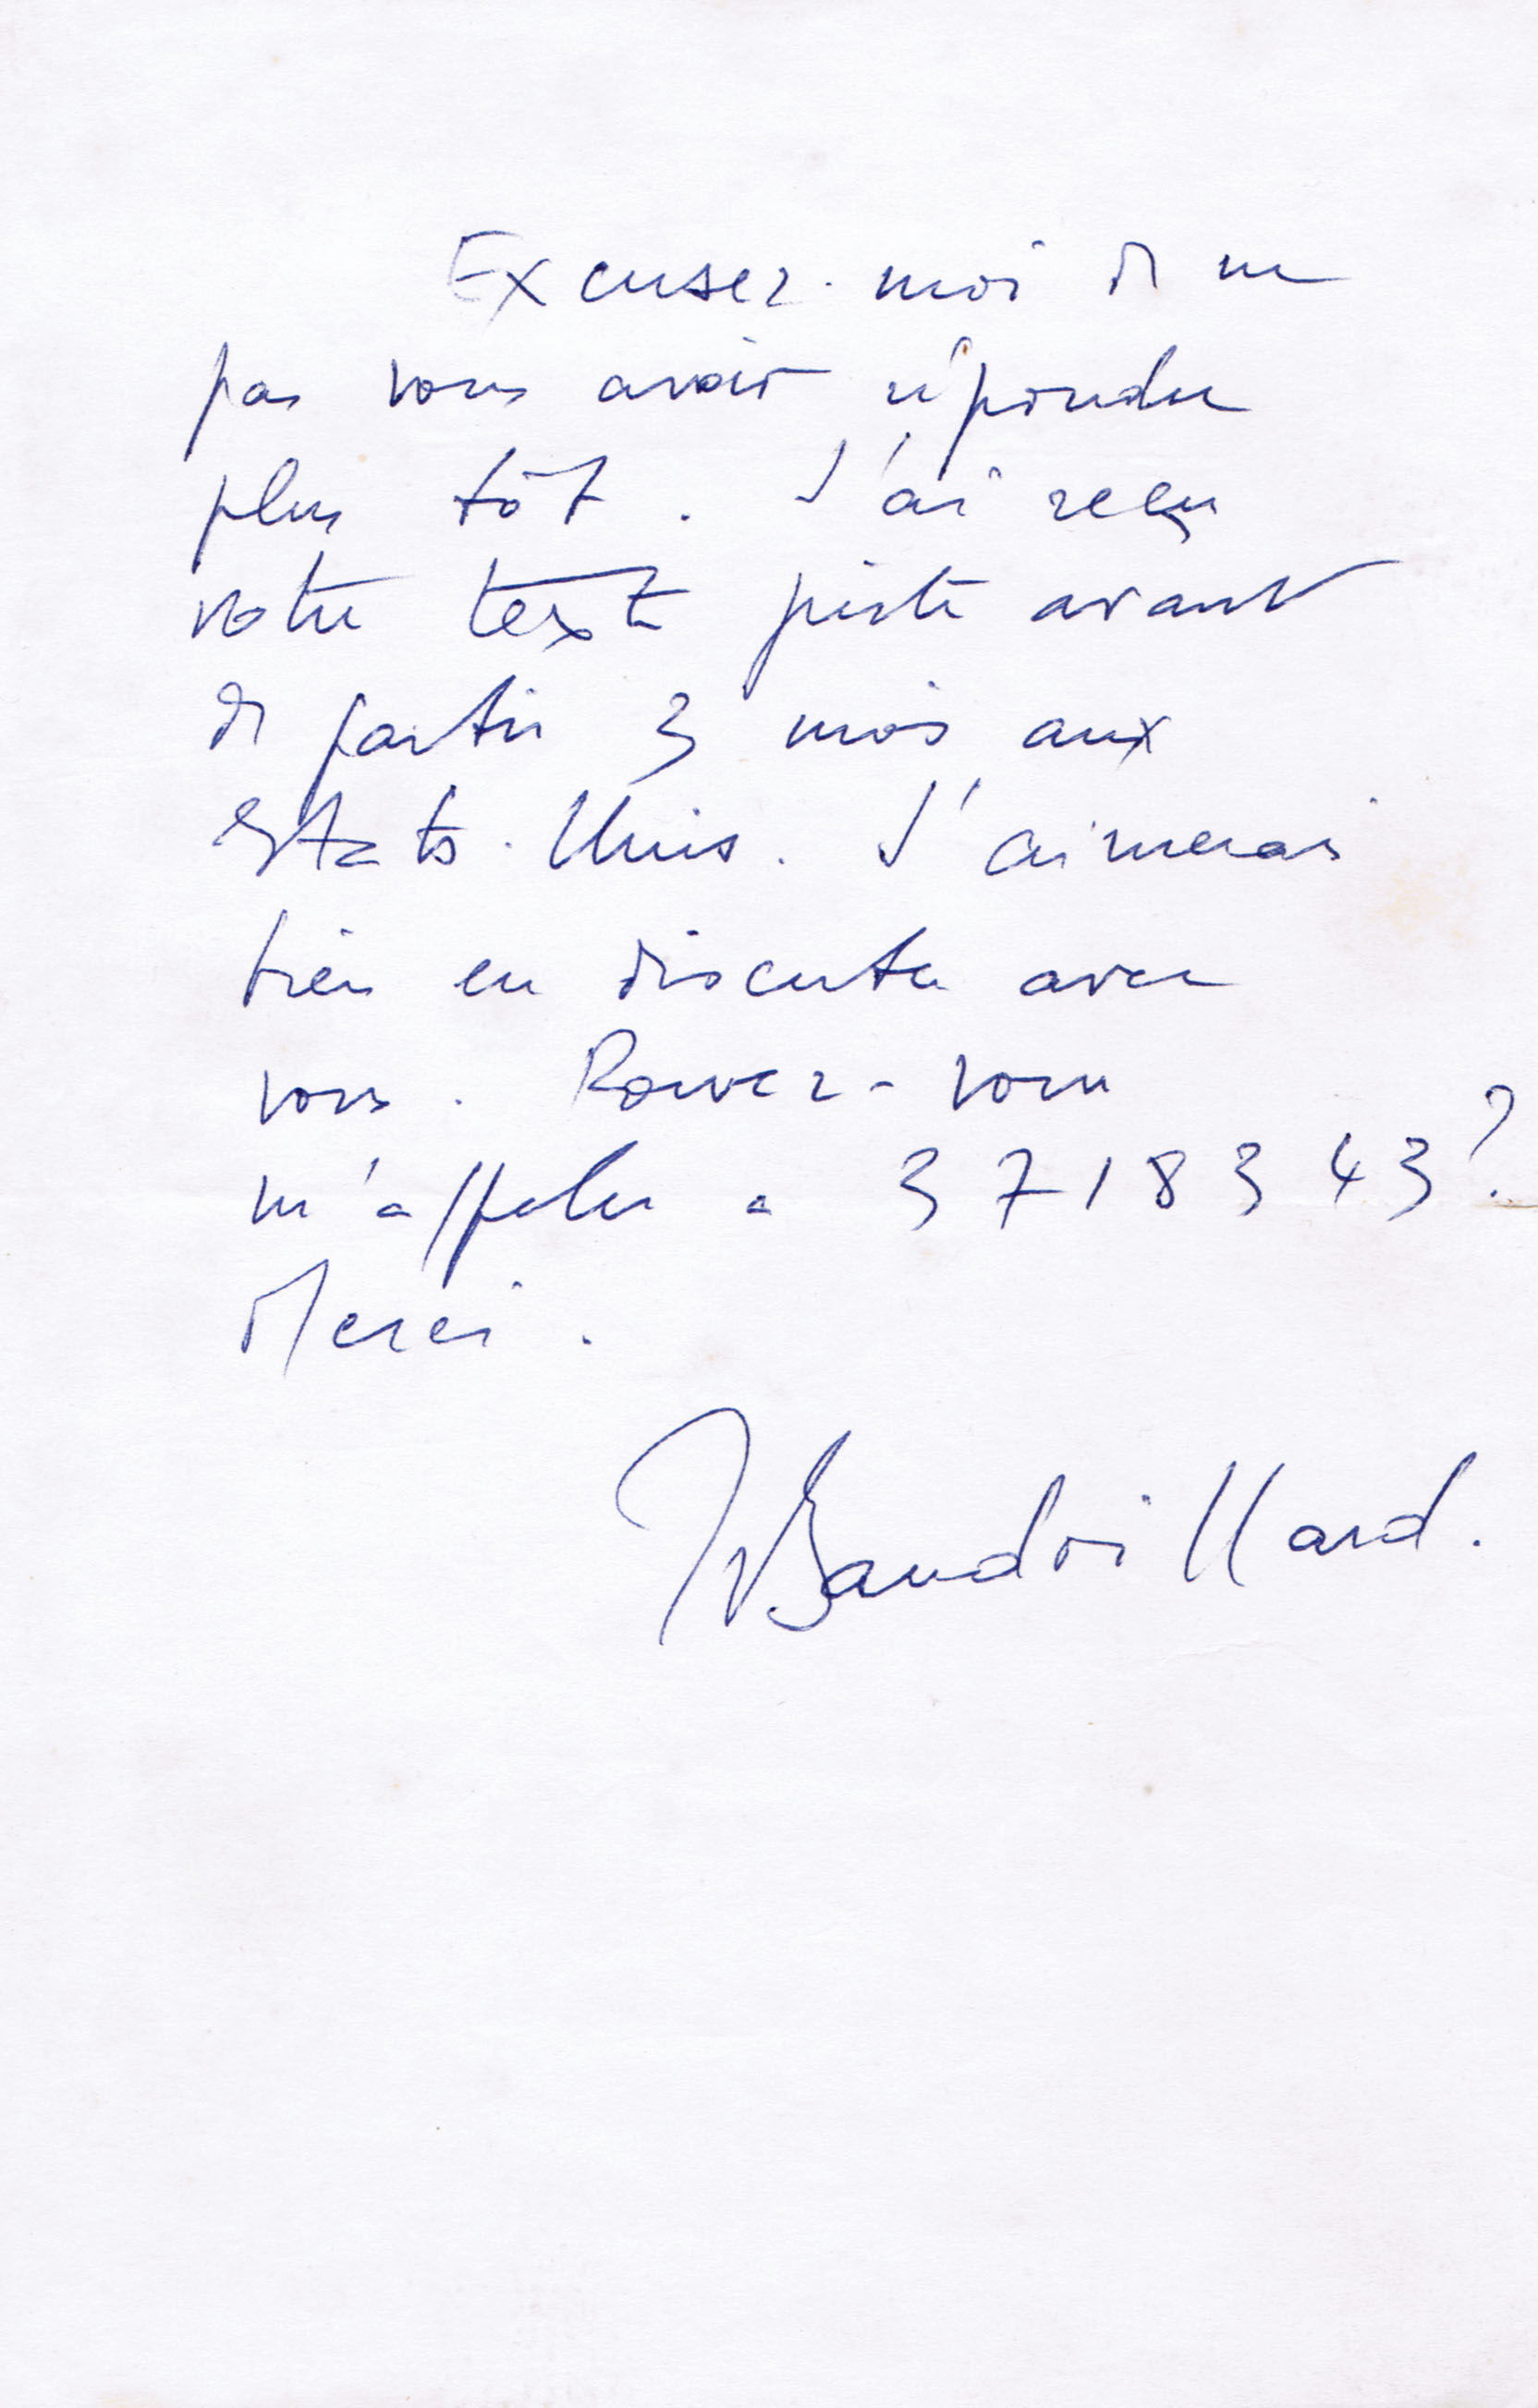 Excusez-moi de ne
pas vous avoir répondu
plus tôt. J'ai reçu
votre texte juste avant
de partir 3 mois aux
Etats-Unis. J'aimerais
bien en discuter avec
vous. Pouvez-vous
m'appeler à 3718343?
Merci.
J Baudrillard.